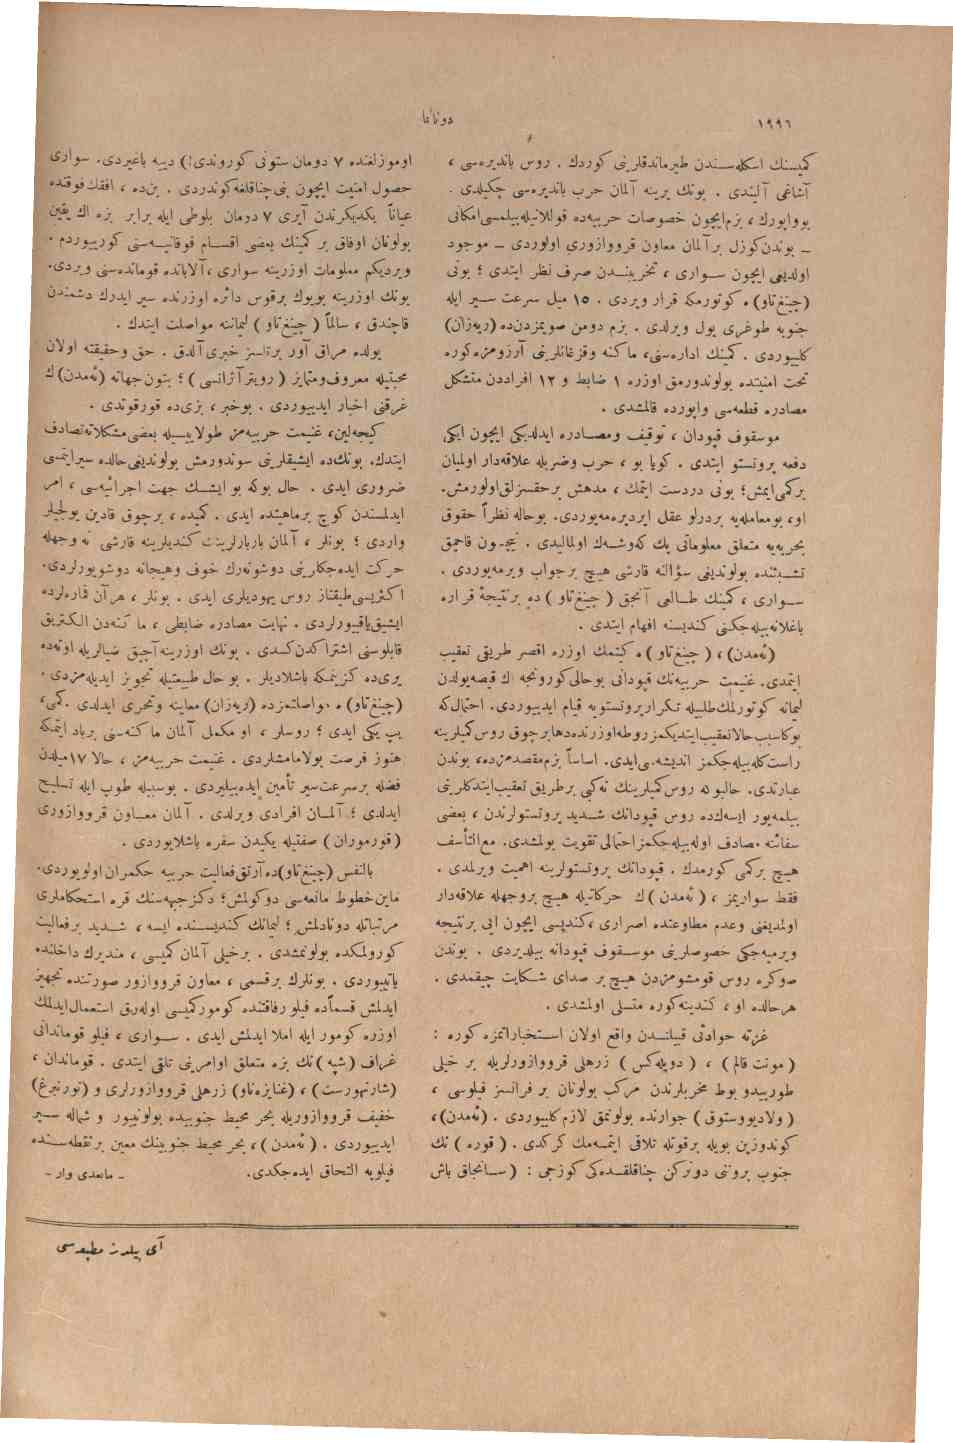 ١٩٩٦
دونانما
كميسنك اسكله‌سندن طيرماندقلرينى كوردك . روس بانديره‌سى ،
آشاغى آليندى . بونك يرينه آلمان حرب بانديره‌سى چكيلدى .
بوواپورك ، بزم‌ايچون خصوصات حربيه‌ده قوللانيله‌بيلمسى‌امكانى
ــ بوندن‌كوزل برآلمان معاون قرووازورى اولوردى ــ موجود
اولديغى ايچون سوارى ، تخريبندن صرف نظر ايتدى ؛ بونى
(چينغ‌تاو) ه كوتورمكه قرار ويردى . ١٥ ميل سرعت سير ايله
جنوبه طوغرى يول ويرلدى . بزم دومن صويمزدن‌ده (ريه‌زان)
كلييوردى . كمينك اداره‌سنى، ماكنه وقزغانلرينى آرزومزه‌كوره
تحت امنيتده بولوندورمق اوزره ١ ضابط و ١٢ افراددن متشكل
مصادره قطعه‌سى واپورده قالمشدى .
موسقوف قپودان ، توقيف ومصادره ايدلديكى ايچون ايكى
دفعه پروتستو ايتدى . كويا بو ، حرب وضربله علاقه‌دار اولميان
بركمى‌ايمش؛ بونى دردست ايتمك ، مدهش برحقسزلق‌اولورمش.
او، بومعامله‌يه بردرلو عقل ايرديره‌مه‌يوردى. بوحاله نظراً حقوق
بحريه‌يه متعلق معلوماتى پك كوشه‌ك اولماليدى . نيچون قاچمق
تشبثنده بولونديغى سؤالنه قارشى هيچ برجواب ويرمه‌يوردى .
سوارى ، كمينك طالعى آنجق ( چينغ‌تاو ) ده برنتيجهٔ قراره
باغلانه‌بيله‌جكنى كنديسنه افهام ايتدى .
(ئه‌مدن) ، ( چينغ‌تاو ) ه كيتمك اوزره اقصر طريقى تعقيب
ايتمدى. غنيمت حربيه‌نك قپودانى بوحالى‌كورونجه اك قيصه‌يولدن
ليمانه كوتورلمك‌طلبيله تكرارپروتستويه قيام ايدييوردى. احتمال‌كه
بوكاسبب‌حالاتعقيب‌ايتديكمزروطه‌اوزرنده‌دهابرچوق روس‌كميلرينه
راست‌كله‌بيله‌جكمز انديشه‌سى‌ايدى. اساساً بزم‌مقصدمزده، بوندن
عبارتدى. حالبوكه روس‌كميلرينك نه‌كبى برطريق تعقيب‌ايتدكلرينى
بيلمه‌يور ايسه‌كده روس قپودانك شديد پروتستولرندن ، بعضى
سفائنه مصادف اوله‌بيله‌جكمزاحتمالى تقويت بولمشدى. مع‌التأسف
هيچ بركمى كورمدك . قپودانك پروتستولرينه اهميت ويرلمدى .
فقط سواريمز ، ( ئه‌مدن ) ك حركاتيله هيچ بروجهله علاقه‌دار
اولمديغنى وعدم مطاوعتده اصرارى ،كنديسى ايچون ايى برنتيجه
ويرميه‌جكى خصوصلرينى موسقوف قپودانه بيلديردى . بوندن
صوكره روس قومشومزدن هيچ بر صداى شكايت چيقمدى .
هرحالده او ، كندينه‌كوره متسلى اولمشدى .
غزته حوادثى قبيلندن واقع اولان استخباراتمزه كوره :
( مونت قالم ) ، ( دوپله‌كس ) زرهلى قرووازورلريله بر خيلى
طورپيدو بوط مخربلرندن مركب بولونان بر فرانسز فيلوسى ،
( ولاديووستوق ) جوارنده بولونمق لازم‌كلييوردى . (ئه‌مدن)،
كوندوزين بويله برقوتله تلاقى ايتمه‌مك كركدى . ( قوره ) نك
جنوب بروننى دونركن چناقلقده‌كى كوزجى : ( سانجاق باش
اوموزلغنده ٧ دومان ستونى كوروندى!) دييه باغيردى. سوارى
حصول امنيت ايچون بنى‌چناقلغه‌كوندردى . بن‌ده ، افقك‌فوقنده
عياناً يكديكرندن آيرى ٧ دومان بلوطى ايله برابر بزه اك يقين
بولونان اوفاق بر كمينك بعضى اقسام فوقانيه‌سنى كورييوردم .
ويرديكم معلومات اوزرينه سوارى، آلاباندە قوماندەسنى ويردى.
بونك اوزرينه بويوك برقوس دائره اوزرنده سير ايدرك دشمندن
قاچندق ، سالماً ( چينغ‌تاو ) ليماننه مواصلت ايتدك .
يولده مراق آور برتلسز خبرى آلدق . حق وحقيقته اولان
محبتيله معروف‌ومتمايز (رويترآژانسى) ؛ بتون‌جهانه (ئه‌مدن) ك
غرقنى اخبار ايدييوردى . بوخبر ، بزى‌ده قورقوتدى .
كيجه‌لين، غنيمت حربيه‌مز طولاييسيله بعضى‌مشكلاته‌تصادف
ايتدك. بونك‌ده ايشيقلرينى سوندورمش بولونديغى‌حالده سيرايتمسى
ضرورى ايدى . حال بوكه بو ايشك جهت اجرائيه‌سى ، امر
ايدلمسندن كوچ برماهيتده ايدى . كميده ، برچوق قادين يولجيلر
واردى ؛ بونلر ، آلمان باربارلرينك كنديلرينه قارشى نه وجهله
حركت ايده‌جكلرينى دوشونه‌رك خوف وهيجانه دوشويورلردى.
اكثريسى‌طبقناز روس يهوديلرى ايدى . بونلر ، هرآن قماره‌لرده
ايشيق‌ياقييورلردى . نهايت مصادره ضابطى ، ماكنه‌دن الكتريق
قابلوسنى اشتراكدن‌كسدى . بونك اوزرينه‌آجيق ضيالريله اوته‌ده
برى‌ده كزينمكه باشلاديلر . بو حال طبيعتيله تجويز ايديله‌مزدى .
(چينغ‌تاو) ه مواصلتمزده (ريه‌زان) معاينه وتحرى ايدلدى . كمى،
يپ يكى ايدى ؛ روسلر ، او مكمل آلمان ماكنه‌سنى برباد ايتمكه
هنوز فرصت بولامامشلردى . غنيمت حربيه‌مز ، حالا ١٧ميلدن
فضله برسرعت‌سير تأمين ايده‌بيليردى . بوسببله طوپ ايله تسليح
ايدلدى ؛ آلمان افرادى ويرلدى . آلمان معاون قرووازورى
( قورموران ) صفتيله يكيدن سفره باشلايوردى .
بالنفس (چينغ‌تاو)ده آرتق‌فعاليت حربيه حكمران اولويوردى.
ماين‌خطوط مانعه‌سى دوكولمش؛ دكزجبهه‌سنك قره استحكاملرى
مرتباتله دوناد‌لمش ؛ ليمانك كنديسنده ايسه ، شديد برفعاليت
كورولمكده بولونمشدى . برخيلى آلمان كميسى ، مندرك داخلنده
ياتييوردى . بونلرك برقسمى ، معاون قرووازور صورتنده تجهيز
ايدلمش قسماًده فيلو رفاقتنده كوموركميسى اوله‌رق استعمال‌ايدلمك
اوزره كومور ايله املا ايدلمش ايدى . سوارى ، فيلو قوماندانى
غراف (شپه) نك بزه متعلق اوامرينى تلقى ايتدى . قوماندان ،
(شارنهورست) ، (غنايزه‌ناو) زرهلى قرووازورلرى و (نورنبرغ)
خفيف قرووازوريله بحر محيط جنوبيده بولونييور و شماله سير
ايدييوردى . (ئه‌مدن)، بحر محيط جنوبينك معين برنقطه‌سنده
فيلويه التحاق ايده‌جكدى.
ــ مابعدى وار ــ
آى ييلديز مطبعه‌سى